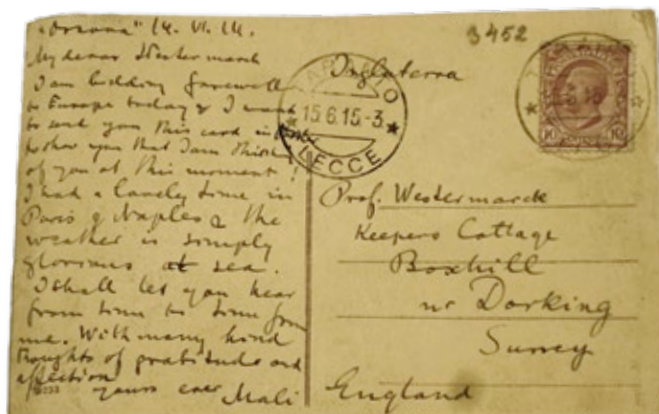 "Orsova" 14.VI.14.
My dear Westermarck
I am bidding farewell
to Europe today & I want
to send you this card in order
to show you that I am thinking
of you at this moment!
I had a lovely time in
Paris & Naples & the
weather is simply
glorious at sea.
I shall let you hear
from time to time from
me. With many kind
thoughts of gratitude and
affection
yours ever Mali
3452
Inglaterra
TARANTO
15.6.15-3
LECCE
10 10
Prof. Westermarck
Keepers Cottage
Boxhill
nr Dorking
Surrey
England